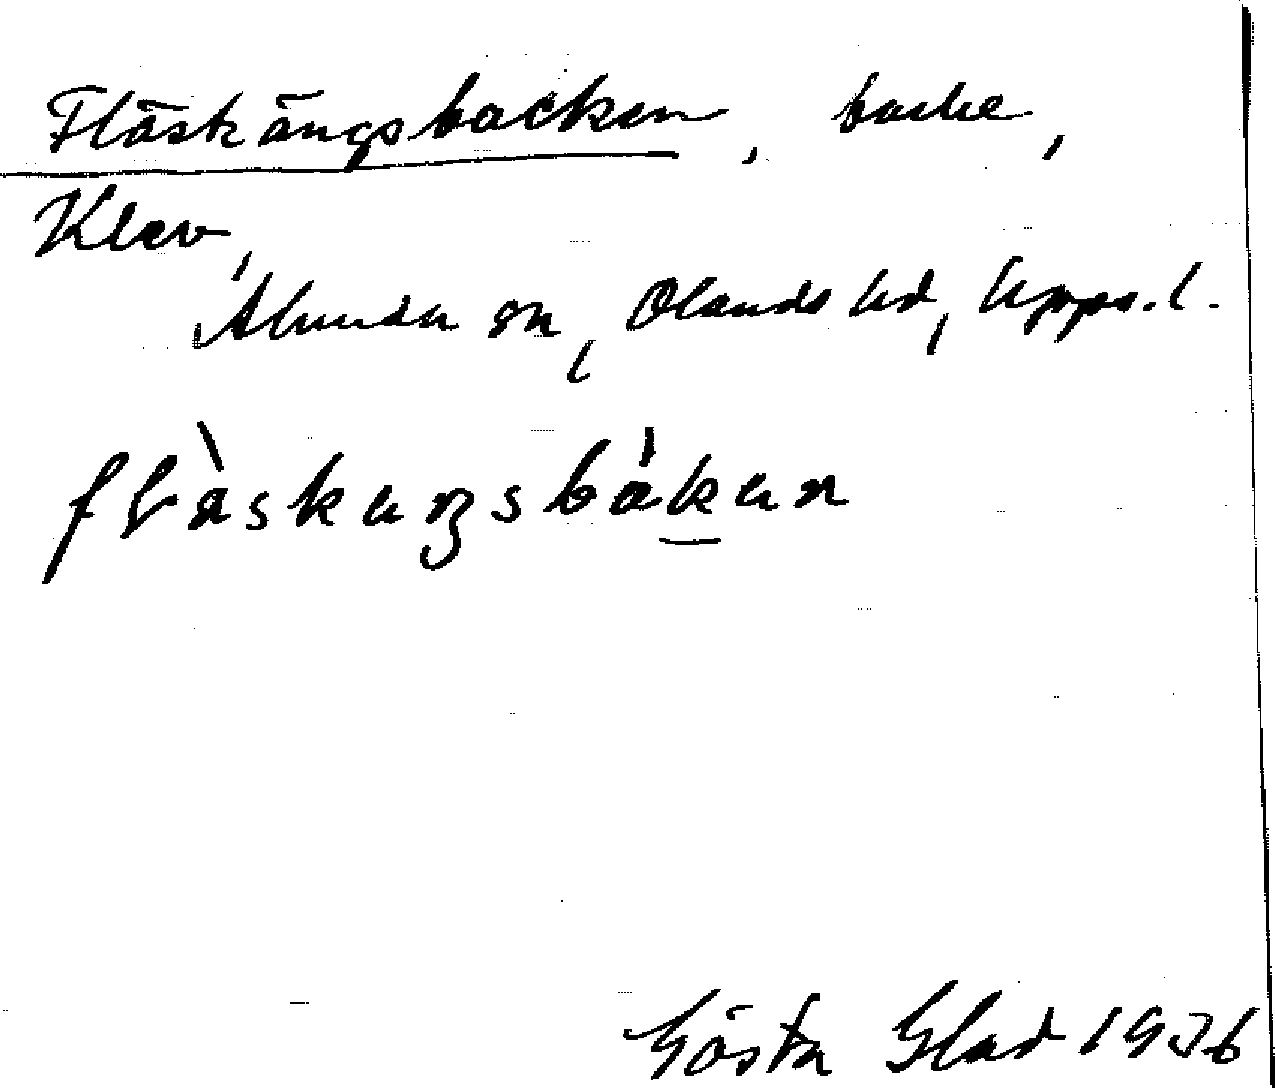 Fläskängsbacken, backe,
Klev,
Alunda sn, Olands hd, Upps. l.
flàskaŋsbákan
Gösta Glad 1936